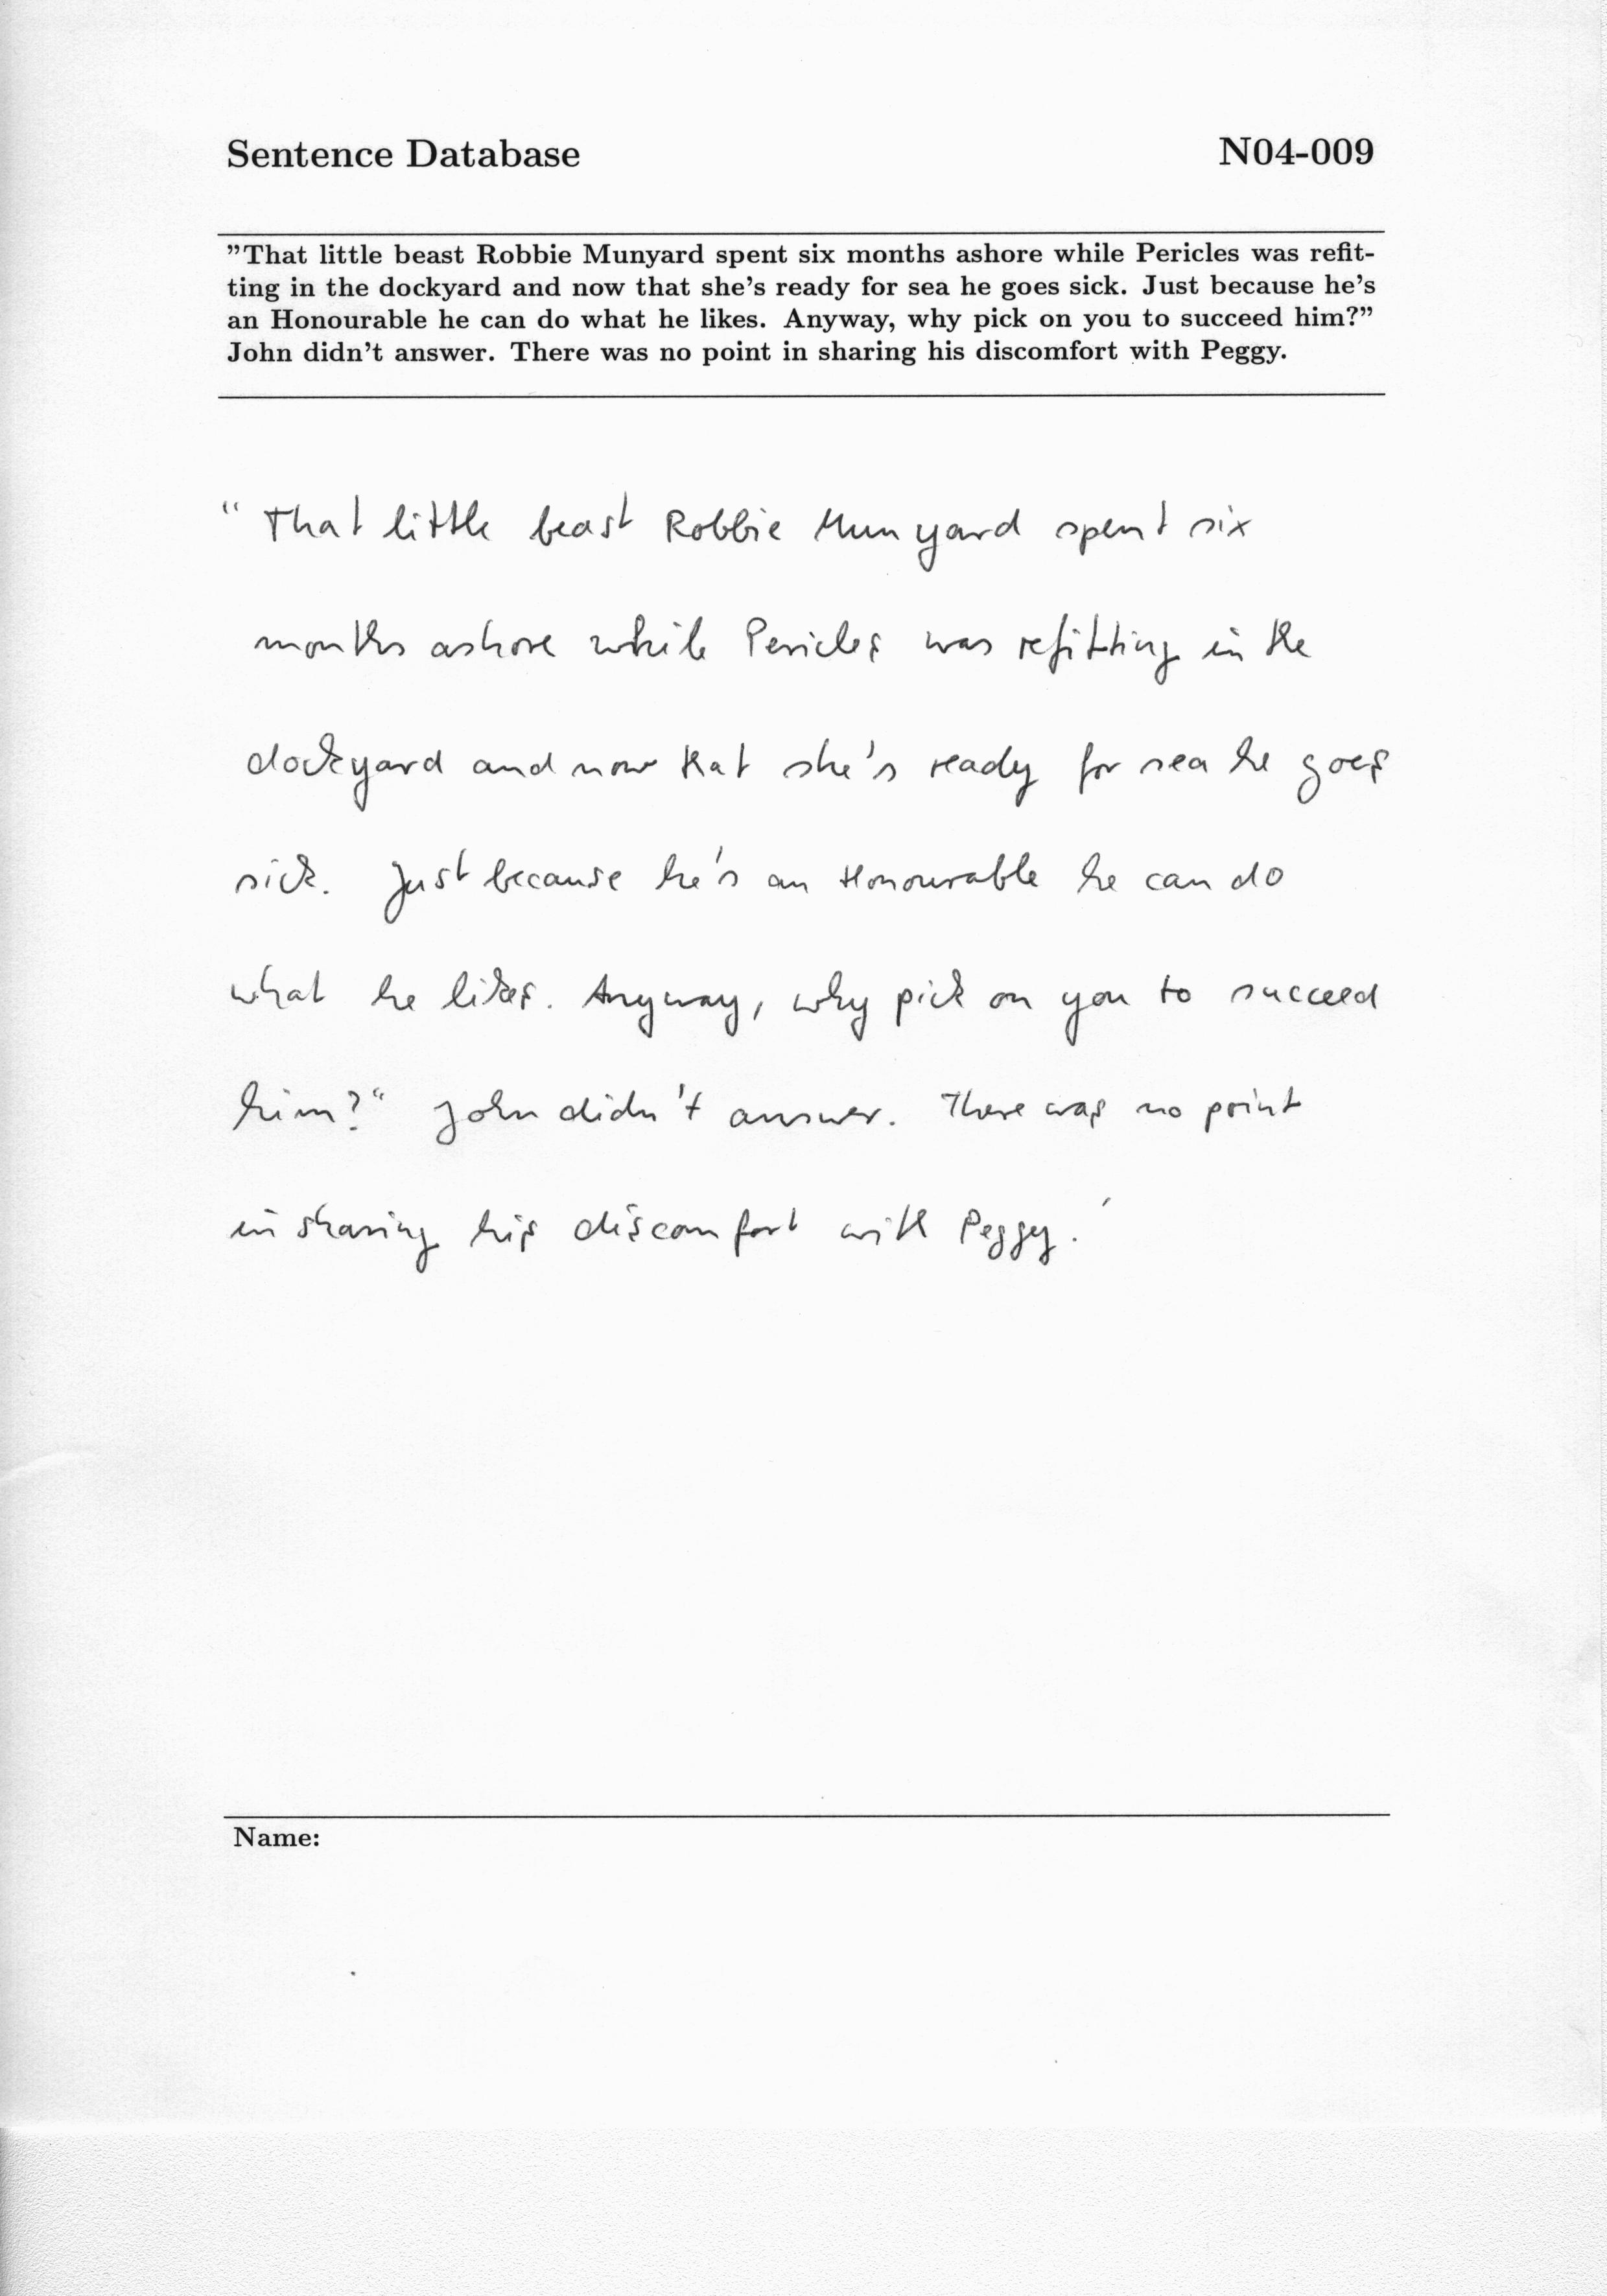 Sentence Database N04-009
”That little beast Robbie Munyard spent six months ashore while Pericles was refit-
ting in the dockyard and now that she’s ready for sea he goes sick. Just because he’s
an Honourable he can do what he likes. Anyway, why pick on you to succeed him?”
John didn’t answer. There was no point in sharing his discomfort with Peggy.
“ That little beast Robbie Munyard spent six
months ashore while Pericles was refitting in the
dockyard and now that she's ready for sea he goes
sick. Just because he's an Honourable he can do
what he likes. Anyway, why pick on you to succeed
him?“ John didn't answer. There was no point
in sharing his discomfort with Peggy.'
Name: